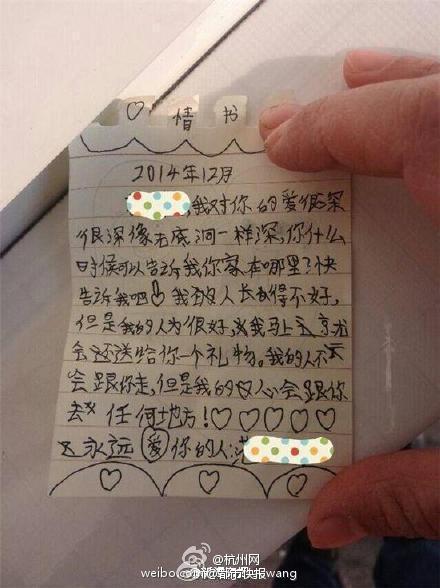 ♡ 情 书
2014年12月
,我对你的爱很深
很深像无底洞一样深,你什么
时候可以告诉我你家在哪里?快
告诉我吧!我本人长得不好,
但是我的人为很好,我马上
会还送给你一个礼物。我的人不
会跟你走,但是我的心会跟你
去 任何地方!♡♡♡♡♡
永远爱你的人:
@杭州网
@都市快报